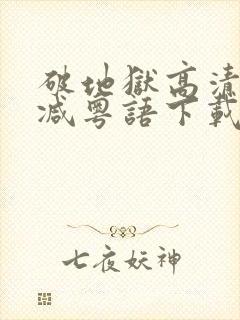 破地獄高清
减粵語下載
七夜妖神